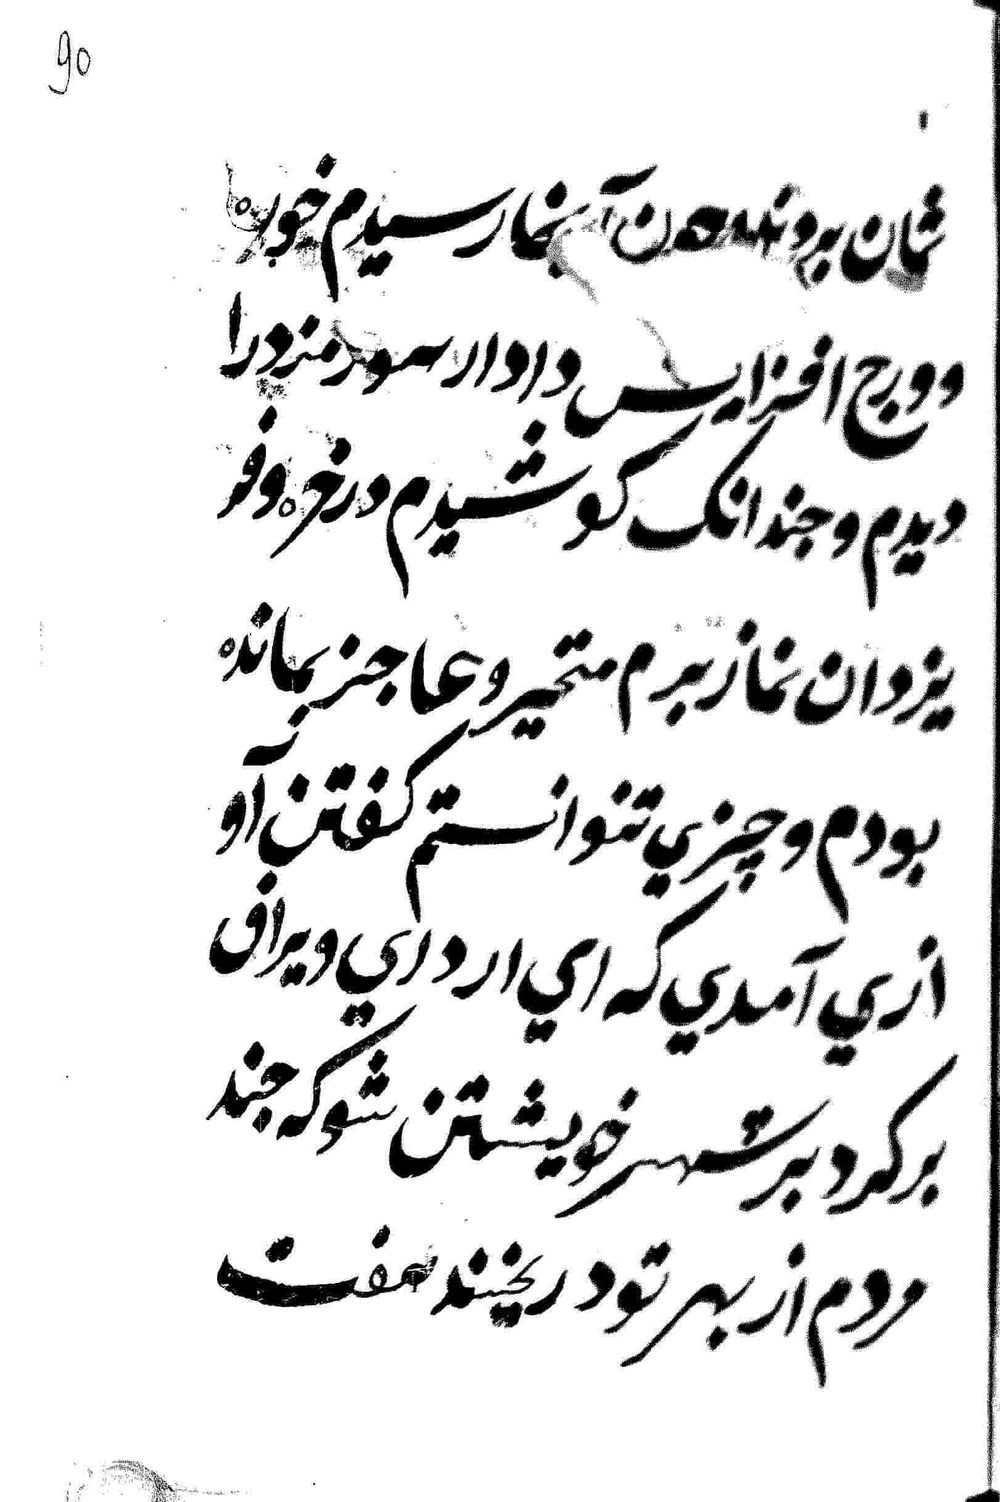 90
ثمان بروند چون آنجا رسیدم خوره
و ورج افزایس دادار هورمزد را
دیدم و جندانک کوشیدم در خره و فر
یزدان نماز برم متحیر و عاجز بمانده
بودم و چیزی نتوانستم کفتن آو
ازی آمدی که ای اردای ویراف
برکرد بر شهر خویشتن شو که جند
مردم از بهر تو در رنجند هفت